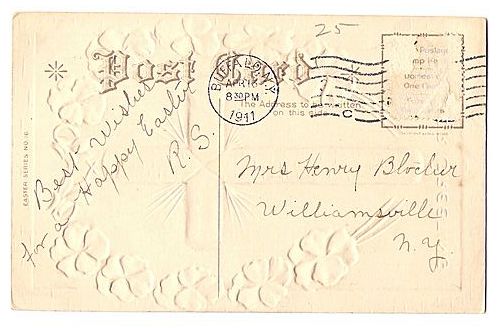 25
Post Card
BUFFALO, N.Y.
APR 13
8 30 PM
1911
The Address to be written
on this side
C
Postage
One Cent
EASTER SERIES NO.
Best Wishes
For a Happy Easter
R. S.
Mrs Henry Blocher
Williamsville
N. Y.